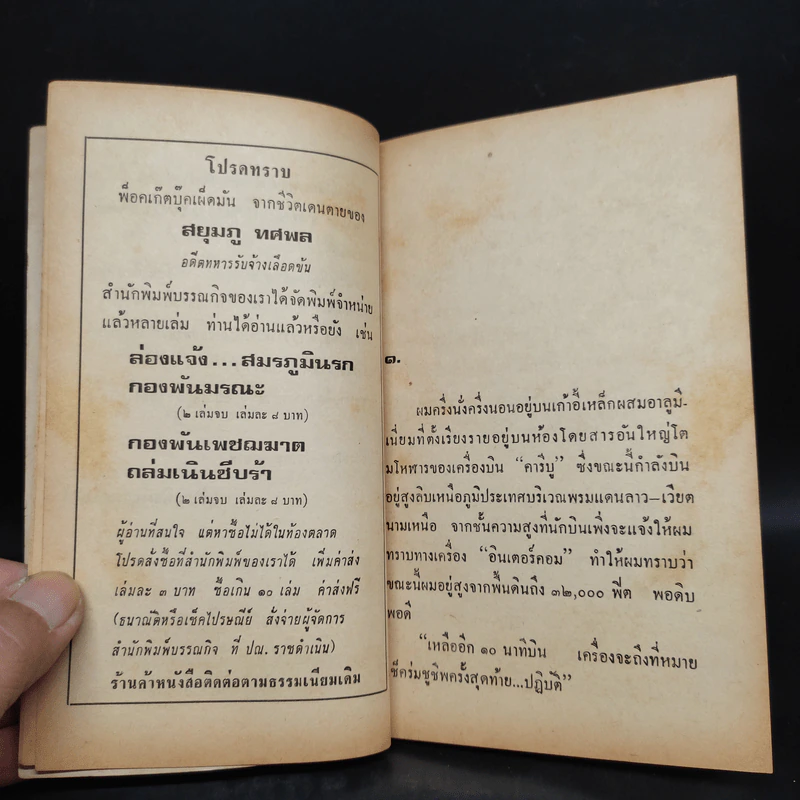 โปรดทราบ
พ็อคเก๊ตบุ๊คเผ็ดมัน จากชีวิตเดนตายของ
สยุมภู ทศพล
อดีตทหารรับจ้างเลือดข้น
สำนักพิมพ์บรรณกิจของเราได้จัดพิมพ์จำหน่าย
แล้วหลายเล่ม ท่านได้อ่านแล้วหรือยัง เช่น
ล่องแจ้ง...สมรภูมินรก
กองพันมรณะ
(๒ เล่มจบ เล่มละ ๘ บาท)
กองพันเพชฌฆาต
ถล่มเนินซีบร้า
(๒ เล่มจบ เล่มละ ๘ บาท)
ผู้อ่านที่สนใจ แต่หาซื้อไม่ได้ในท้องตลาด
โปรดสั่งซื้อที่สำนักพิมพ์ของเราได้ เพิ่มค่าส่ง
เล่มละ ๓ บาท ซื้อเกิน ๑๐ เล่ม ค่าส่งฟรี
(ธนาณัติหรือเช็คไปรษณีย์ สั่งจ่ายผู้จัดการ
สำนักพิมพ์บรรณกิจ ที่ ปณ. ราชดำเนิน)
ร้านค้าหนังสือติดต่อตามธรรมเนียมเดิม
๑.
ผมครึ่งนั่งครึ่งนอนอยู่บนเก้าอี้เหล็กผสมอาลูมิ-
เนี่ยมที่ตั้งเรียงรายอยู่บนห้องโดยสารอันใหญ่โต
มโหฬารของเครื่องบิน “คารีบู” ซึ่งขณะนี้กำลังบิน
อยู่สูงลิบเหนือภูมิประเทศบริเวณพรมแดนลาว–เวียต
นามเหนือ จากชั้นความสูงที่นักบินเพิ่งจะแจ้งให้ผม
ทราบทางเครื่อง “อินเตอร์คอม” ทำให้ผมทราบว่า
ขณะนี้ผมอยู่สูงจากพื้นดินถึง ๓๒,๐๐๐ ฟีต พอดิบ
พอดี
“เหลืออีก ๑๐ นาทีบิน เครื่องจะถึงที่หมาย
เช็คร่มชูชีพครั้งสุดท้าย...ปฏิบัติ”